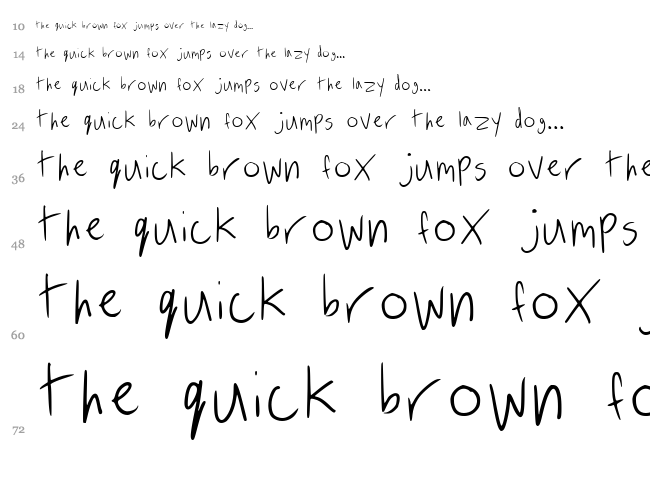 10 the quick brown fox jumps over the lazy dog...
14 the quick brown fox jumps over the lazy dog...
18 the quick brown fox jumps over the lazy dog...
24 the quick brown fox jumps over the lazy dog...
36 the quick brown fox jumps over the
48 the quick brown fox jumps
60 the quick brown fox j
72 the quick brown fo